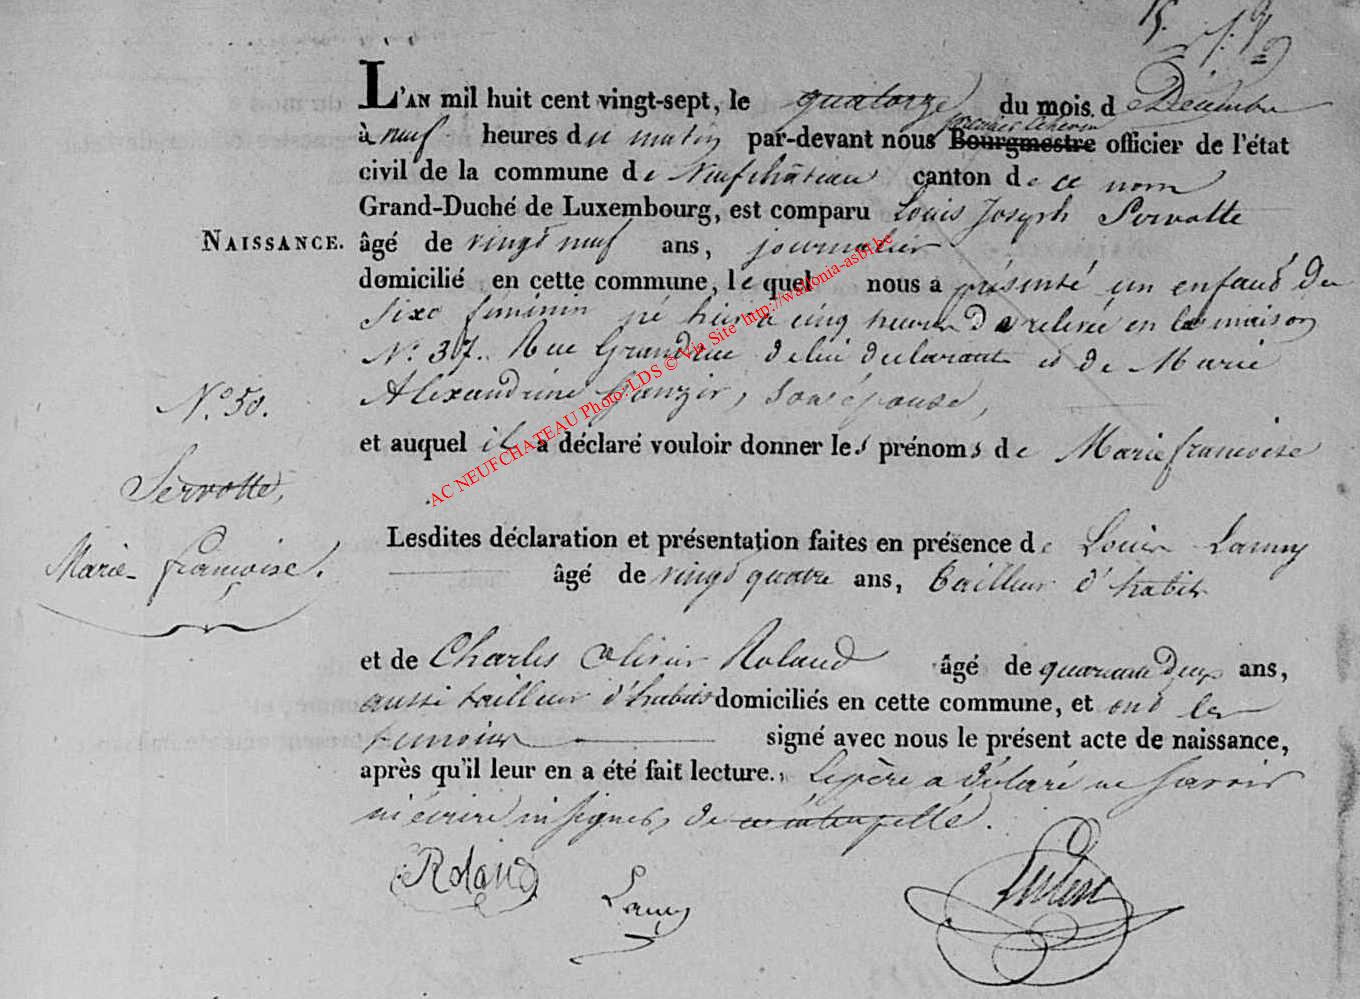 15.
L'AN mil huit cent vingt-sept, le quatorze du mois de Décembre
à neuf heures du matin par-devant nous premier échevin Bourgmestre officier de l'état
civil de la commune de Neufchâteau canton de ce nom
Grand-Duché de Luxembourg, est comparu Louis Joseph Servotte
NAISSANCE. âgé de vingt neuf ans, journalier
domicilié en cette commune, lequel nous a présenté un enfant du
sexe féminin né hier à cinq heures de relevée en la maison
N.º 37. Rue Grand rue de lui déclarant et de Marie
Nº 50. Alexandrine son épouse,
et auquel il a déclaré vouloir donner les prénoms de Marie françoise
Servotte,
Marie-françoise.
Lesdites déclaration et présentation faites en présence de Louis Lamy
âgé de vingt quatre ans, tailleur d'habits
et de Charles Olivier Roland âgé de quarante deux ans,
aussi tailleur d'habits domiciliés en cette commune, et ont les
témoins signé avec nous le présent acte de naissance,
après qu'il leur en a été fait lecture., Le père a déclaré ne savoir
ni écrire ni signer, de ce interpellé.
Roland
Lamy
AC NEUFCHATEAU Photo: LDS © Via Site http://wallonia-asbl.be